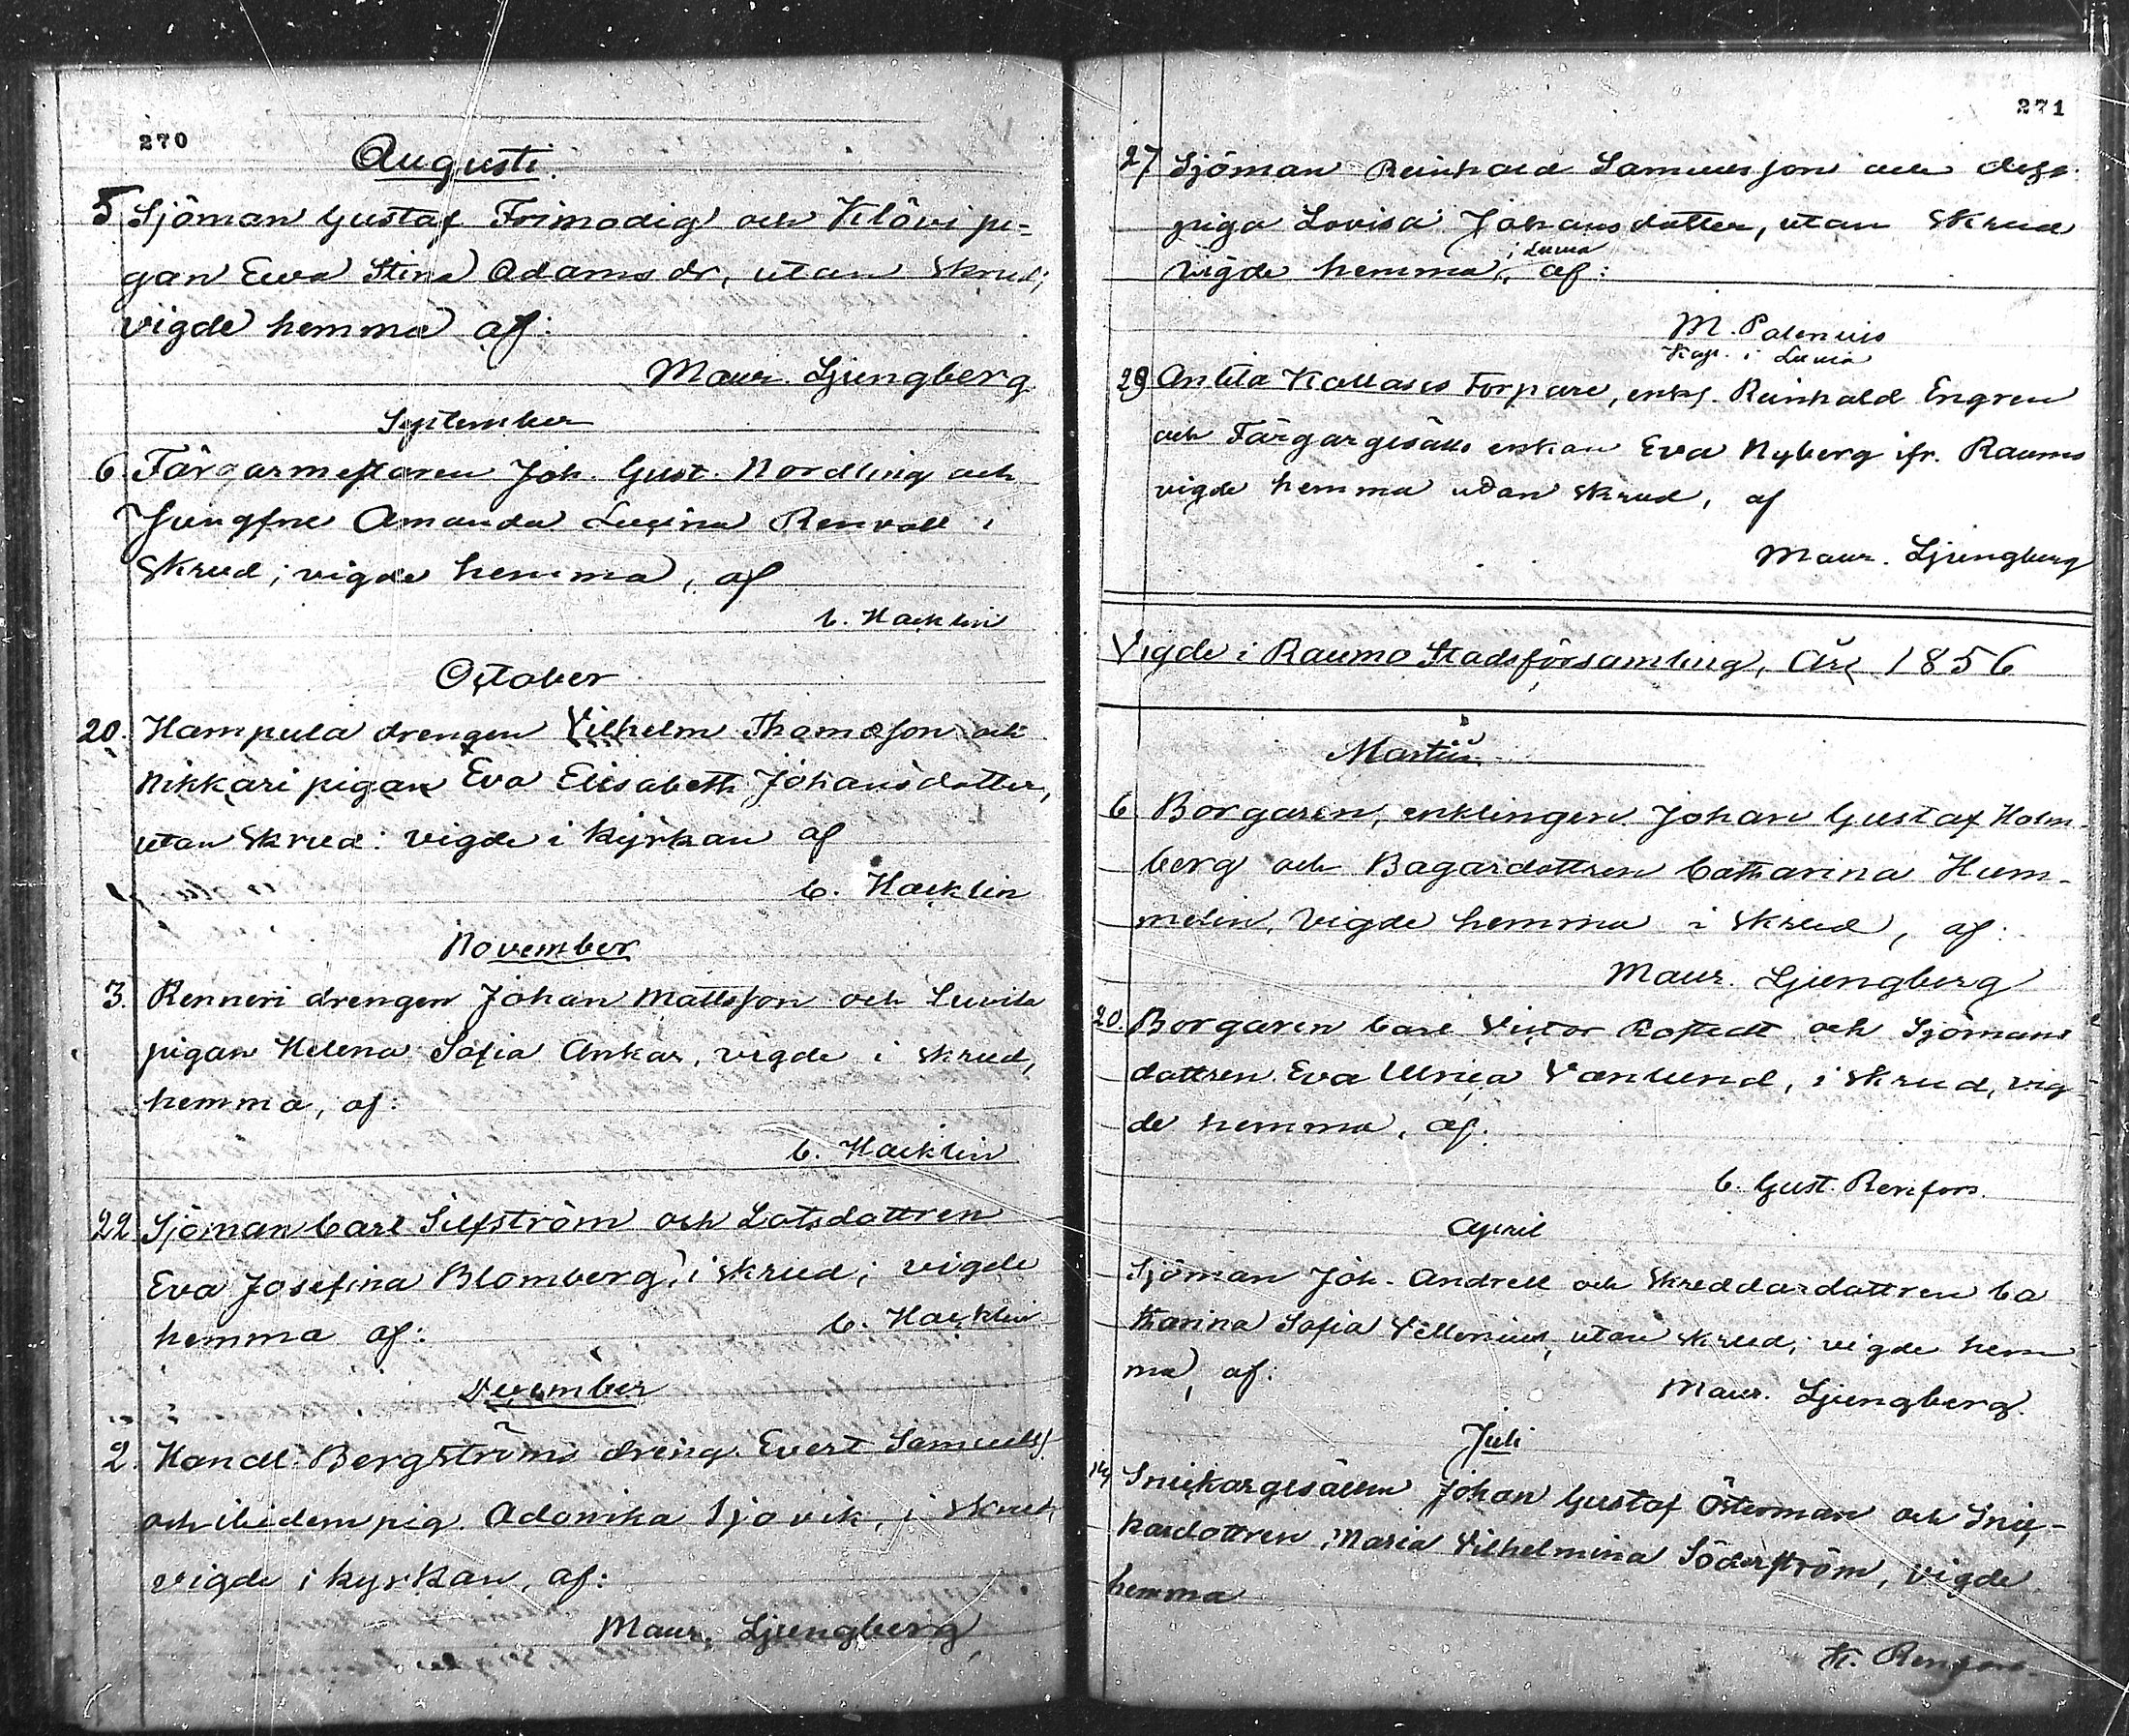 270
Augusti.
5 Sjöman Gustaf Frimodig och Klövi pi-
gan Eva Stina Adams dr, utan Skrud;
vigde hemma af:
Maur. Ljungberg
September
6 Färgarmestaren Joh. Gust. Nordling och
Jungfru Amanda Lucina Renvall i
Skrud; vigde hemma, af
C. Hacklin
October
20. Hampula drengen Vilhelm Thomasson och
Nikkari pigan Eva Elisabeth Johansdotter,
utan Skrud: vigde i Kyrkan af
C. Hacklin
November
3. Renneri drengen Johan Mattsson och
pigan Helena Sofia Ankar, vigde i skrud,
hemma, af:
C. Hacklin
22 Sjöman Carl Silfström och Lotsdottren
Eva Josefina Blomberg, i skrud; vigde
hemma af: C. Hacklin
December
2. Handl. Bergströms dräng. Evert Samuels.
och ibidem pig. Adamika Sjövik, i skrud,
vigde i kyrkan, af:
Maur. Ljungberg
271
27 Sjöman Reinhold Samuelsson och dess
piga Lovisa Johansdotter, utan Skrud
i Luvia
vigde hemma, af:
M. Polenius
Kap. i Luvia
29 Anttila Kallasis Torpare, enkl. Reinhold Engren
och Färgargesälls enkan Eva Nyberg ifr. Raumo
vigde hemma utan skrud, af
Maur. Ljungberg
Vigde i Raumo Stadsförsamling, År 1856
Martii
6 Borgaren, enklingen Johan Gustaf Holm-
berg och Bagardottren Catharina Hum-
melin, vigde hemma i skrud, af:
Maur. Ljungberg
20. Borgaren Carl Victor Rostedt och Sjömans
dottren Eva Ulrica Vanlund, i skrud, vig-
de hemma, af:
C. Gust. Renfors.
April
Sjöman Joh. Andrell och Skreddardottren Ca
tharina Sofia Villenius, utan skrud; vigde hem-
ma, af:
Maur. Ljungberg.
Juli
14 Snickargesällen Johan Gustaf Österman och Snic-
kardottren Maria Vilhelmina Söderström, vigde
hemma
K. Renfors.